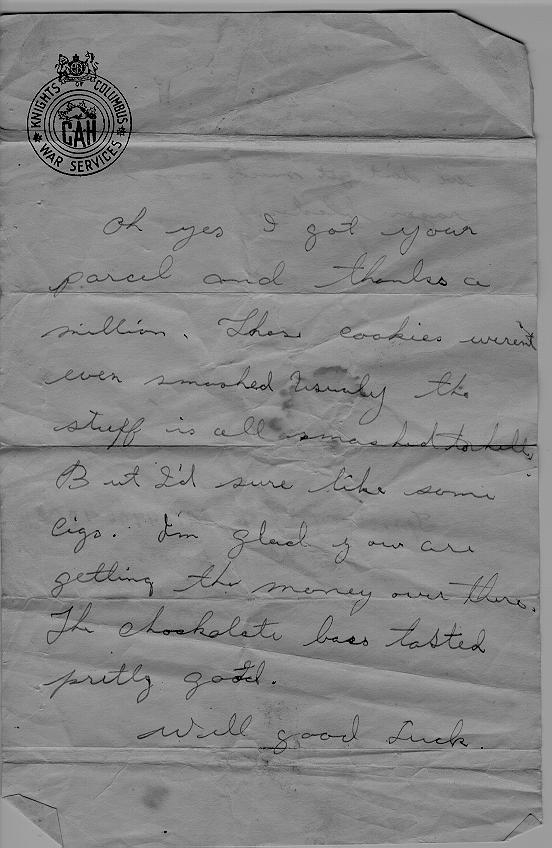 KNIGHTS OF COLUMBUS
CAH
WAR SERVICES
Oh yes I got your
parcel and thanks a
million. Those cookies weren't
even smashed Usualy the
stuff is all smashed to hell.
But I'd sure like some
cigs. I'm glad you are
getting the money over there.
The chockolate bars tasted
pretty good.
Well good Luck.